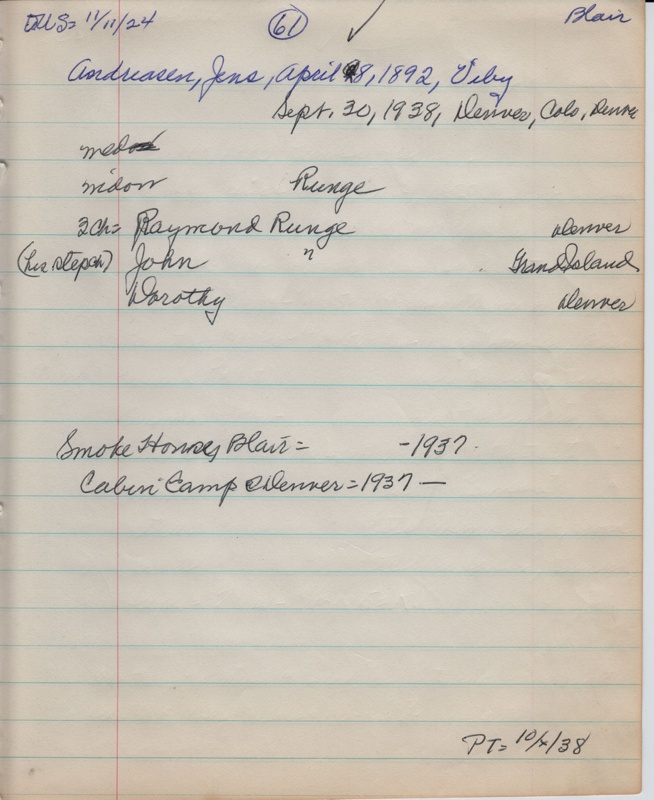 DMS= 11/11/24 61 ✓ Blair
Andreasen, Jens, April 8, 1892, Viby
Sept. 30, 1938, Denver, Colo, Denver
widow Runge
3ch= Raymond Runge Denver
(his stepch) John " Grand Island
Dorothy Denver
Smoke House, Blair= -1937
Cabin Camp Denver=1937 —
PT= 10/4/38